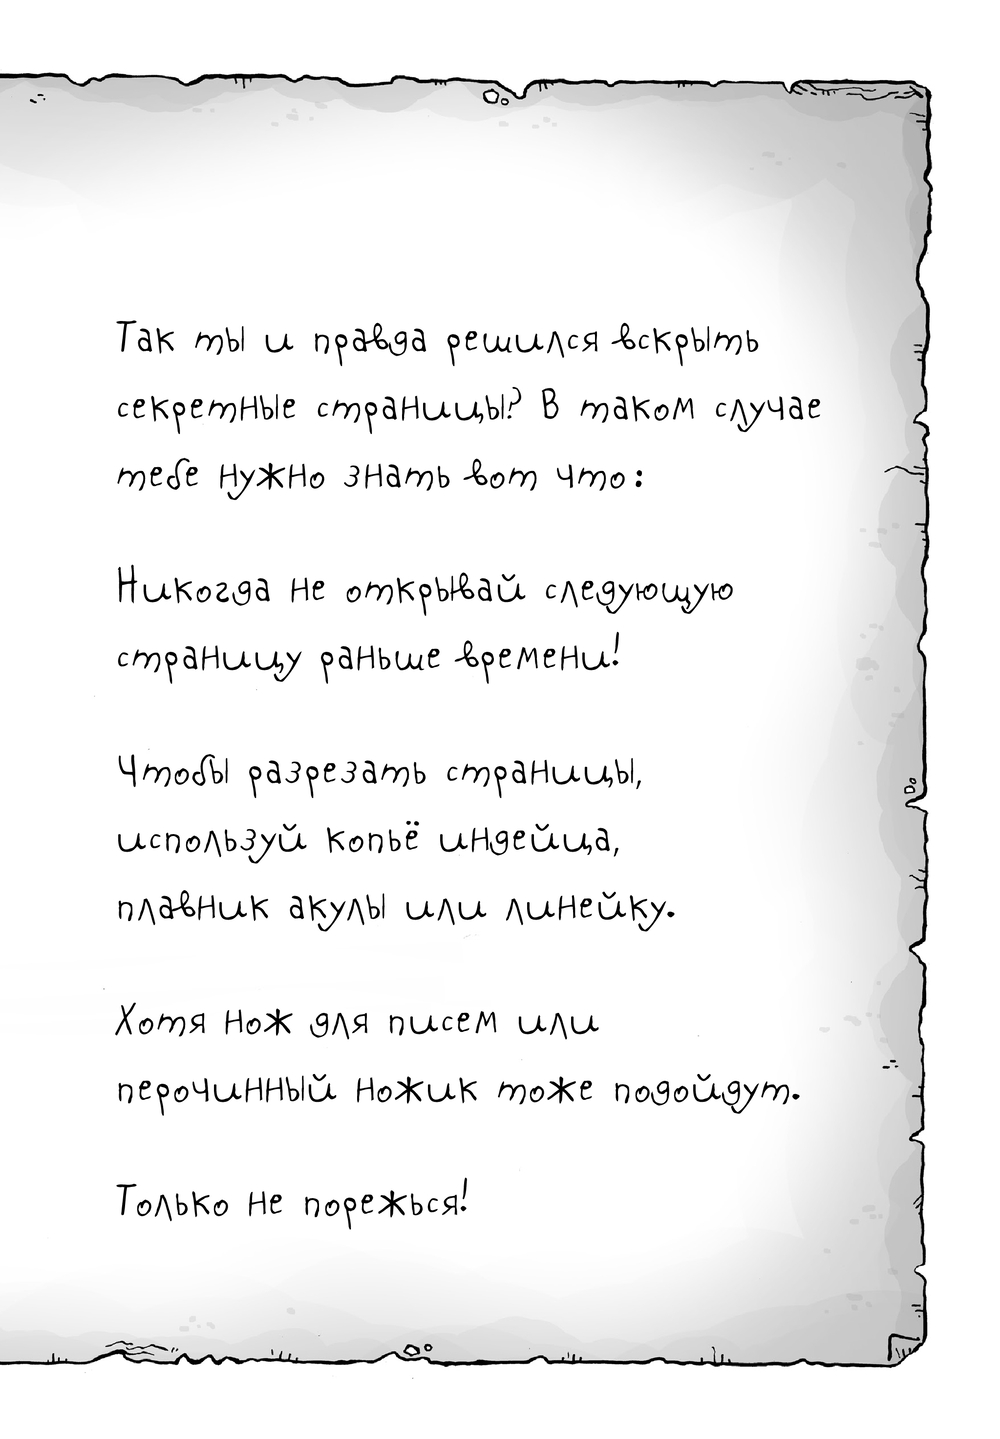 Так ты и правда решился вскрыть
секретные страницы? В таком случае
тебе нужно знать вот что:
Никогда не открывай следующую
страницу раньше времени!
Чтобы разрезать страницы,
используй копьё индейца,
плавник акулы или линейку.
Хотя нож для писем или
перочинный ножик тоже подойдут.
Только не порежься!